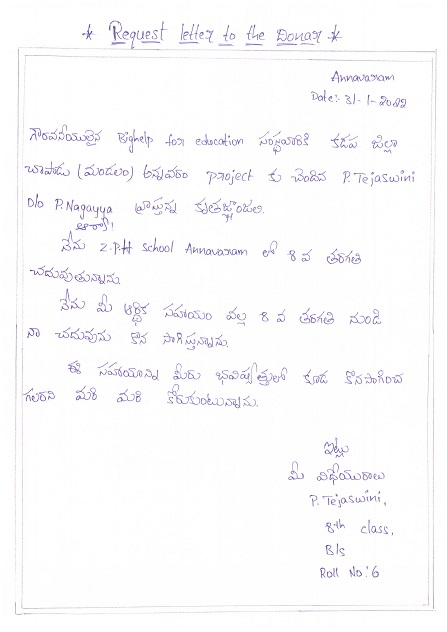 * Request letter to the Donar *
Annavaram
Date:- 31-1-2022
గౌరవనీయులైన Bighelp for education సంస్థవారికి కడప జిల్లా
చాపాడు (మండలం) అన్నవరం project కు చెందిన P.Tejaswini
D/o P.Nagayya వ్రాస్తున్న కృతజ్ఞతాంజలి.
ఆర్యా!
నేను Z.P.H school Annavaram లో 8 వ తరగతి
చదువుతున్నాను.
నేను మీ ఆర్థిక సహాయం వల్ల 8 వ తరగతి నుండి
నా చదువును కొన సాగిస్తున్నాను.
ఈ సహాయాన్ని మీరు భవిష్యత్తులో కూడ కొనసాగించ
గలరని మరి మరి కోరుకుంటున్నాను.
ఇట్లు
మీ విధేయురాలు
P. Tejaswini,
8th class,
B/s
Roll No:6